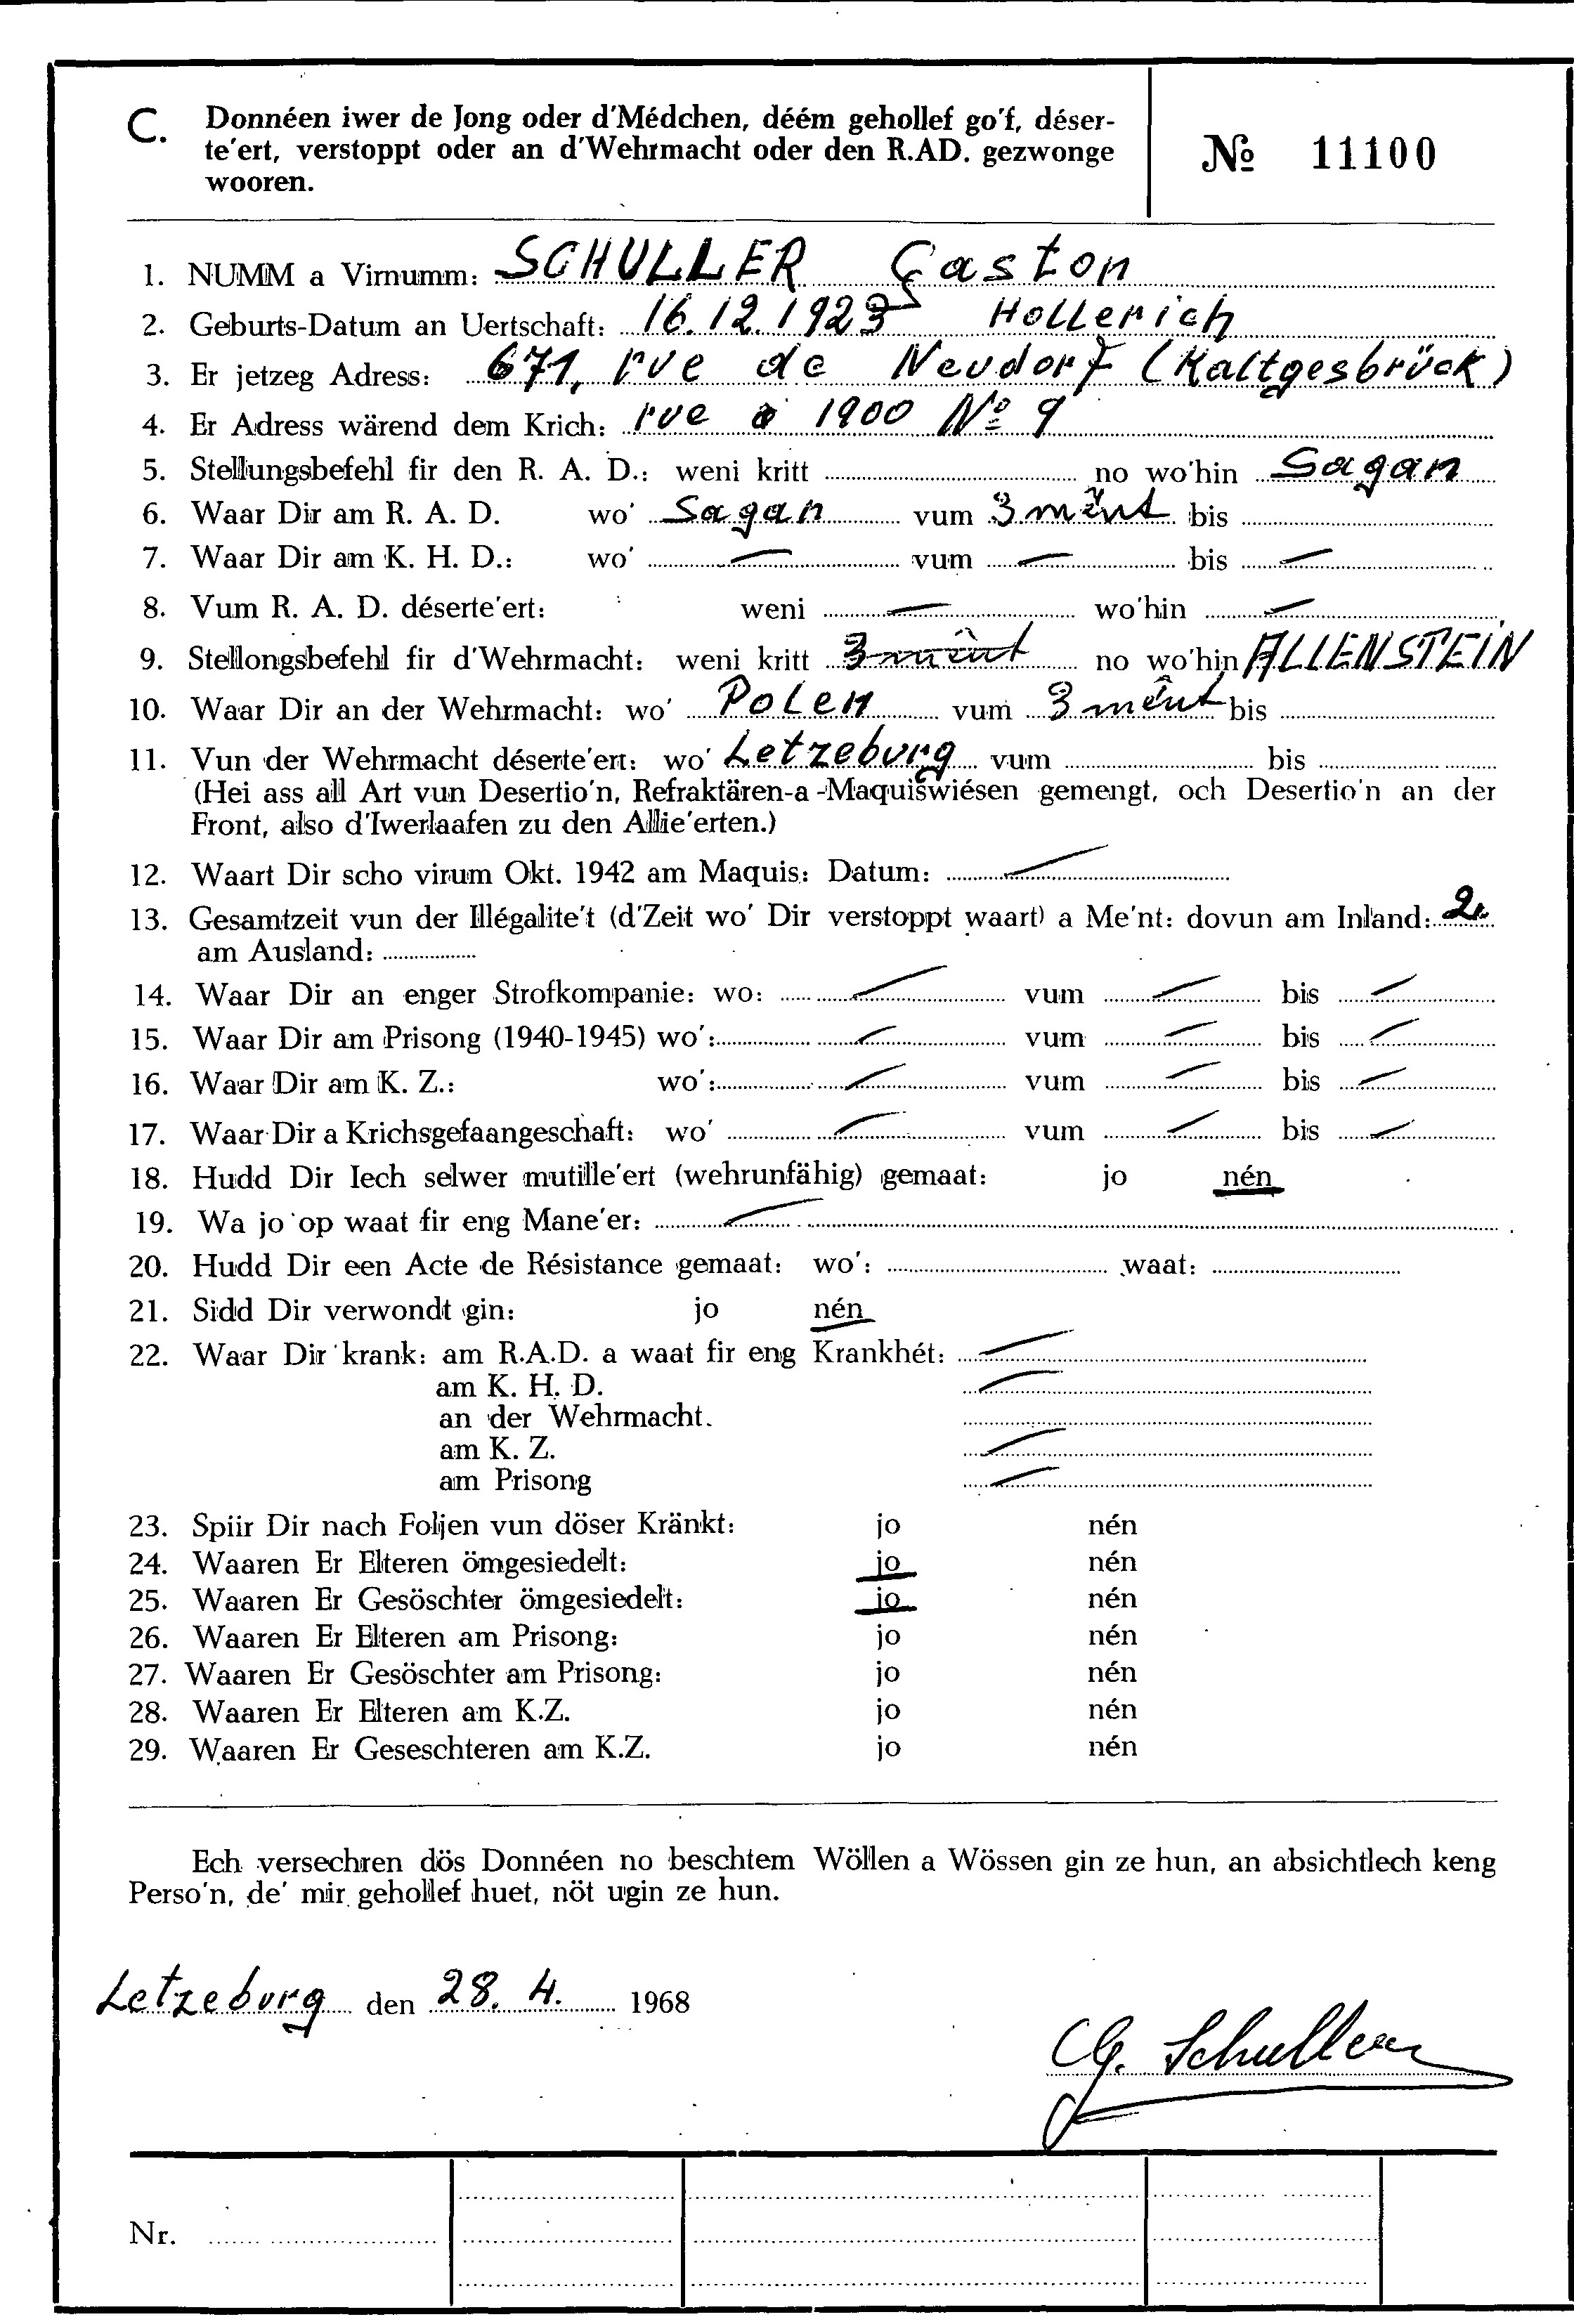 C. Donnéen iwer de Jong oder d'Médchen, déém gehollef go'f, déser-
te'ert, verstoppt oder an d'Wehrmacht oder den R.AD. gezwonge
wooren.
№ 11100
1. NUMM a Virnumm: SCHULLER Gaston
2. Geburts-Datum an Uertschaft: 16.12.1923 Hollerich
3. Er jetzeg Adress: 671, rue de Neudorf (Kaltgesbrück)
4. Er Adress wärend dem Krich: rue 1900 No 9
5. Stellungsbefehl fir den R. A. D.: weni kritt no wo'hin Sagan
6. Waar Dir am R. A. D. wo' Sagan vum 3 mént bis
7. Waar Dir am K. H. D.: wo' — vum — bis —
8. Vum R. A. D. déserte'ert: weni — wo'hin —
9. Stellongsbefehl fir d'Wehrmacht: weni kritt 3 mént no wo'hin ALLENSTEIN
10. Waar Dir an der Wehrmacht: wo' Polen vum 3 mént bis
11. Vun der Wehrmacht déserte'ert: wo' Letzeburg vum bis
(Hei ass all Art vun Desertio'n, Refraktären-a-Maquiswiésen gemengt, och Desertio'n an der
Front, also d'Iwerlaafen zu den Allie'erten.)
12. Waart Dir scho virum Okt. 1942 am Maquis: Datum: —
13. Gesamtzeit vun der Illégalite't (d'Zeit wo' Dir verstoppt waart) a Me'nt: dovun am Inland: 2
am Ausland:
14. Waar Dir an enger Strofkompanie: wo: — vum — bis —
15. Waar Dir am Prisong (1940-1945) wo': — vum — bis —
16. Waar Dir am K. Z.: wo': — vum — bis —
17. Waar Dir a Krichsgefaangeschaft: wo' — vum — bis —
18. Hudd Dir Iech selwer mutille'ert (wehrunfähig) gemaat: jo nén
19. Wa jo op waat fir eng Mane'er: —
20. Hudd Dir een Acte de Résistance gemaat: wo': waat:
21. Sidd Dir verwondt gin: jo nén
22. Waar Dir krank: am R.A.D. a waat fir eng Krankhét: —
am K. H. D. —
an der Wehrmacht.
am K. Z. —
am Prisong —
23. Spiir Dir nach Foljen vun döser Kränkt: jo nén
24. Waaren Er Elteren ömgesiedelt: jo nén
25. Waaren Er Gesöschter ömgesiedelt: jo nén
26. Waaren Er Elteren am Prisong: jo nén
27. Waaren Er Gesöschter am Prisong: jo nén
28. Waaren Er Elteren am K.Z. jo nén
29. Waaren Er Geseschteren am K.Z. jo nén
Ech versechren dös Donnéen no beschtem Wöllen a Wössen gin ze hun, an absichtlech keng
Perso'n, de' mir gehollef huet, nöt ugin ze hun.
Letzeburg den 28. 4. 1968
G. Schuller
Nr.